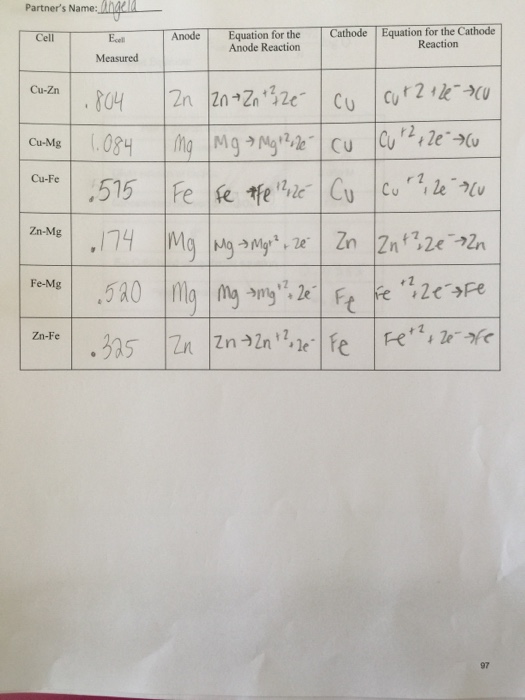 Partner's Name: angela
Cell Ecell Measured Anode Equation for the Anode Reaction Cathode Equation for the Cathode Reaction
Cu-Zn .804 Zn Zn→Zn+2, 2e- Cu Cu+2 + 2e-→Cu
Cu-Mg 1.084 Mg Mg→Mg+2, 2e- Cu Cu+2, 2e-→Cu
Cu-Fe .575 Fe Fe→Fe+2, 2e- Cu Cu+2, 2e-→Cu
Zn-Mg .174 Mg Mg→Mg+2, 2e- Zn Zn+2, 2e-→Zn
Fe-Mg .520 Mg Mg→mg+2, 2e- Fe Fe+2, 2e-→Fe
Zn-Fe .325 Zn Zn→Zn+2, 2e- Fe Fe+2, 2e-→Fe
97